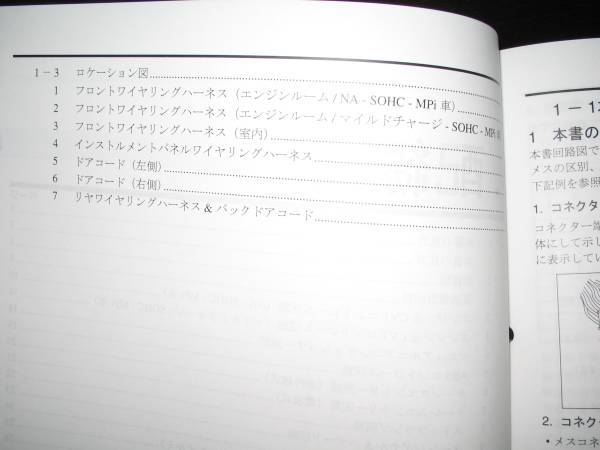 1－3 ロケーション図
1 フロントワイヤリングハーネス（エンジンルーム / NA - SOHC - MPi 車）
2 フロントワイヤリングハーネス（エンジンルーム / マイルドチャージ - SOHC - MPi 車
3 フロントワイヤリングハーネス（室内）
4 インストルメントパネルワイヤリングハーネス
5 ドアコード（左側）
6 ドアコード（右側）
7 リヤワイヤリングハーネス & バックドアコード
1－1
1 本書の
本書回路図で
メスの区別、
下記例を参照
1. コネクタ
コネクター端
体にして示し
に表示してい
2. コネクタ
・メスコネ